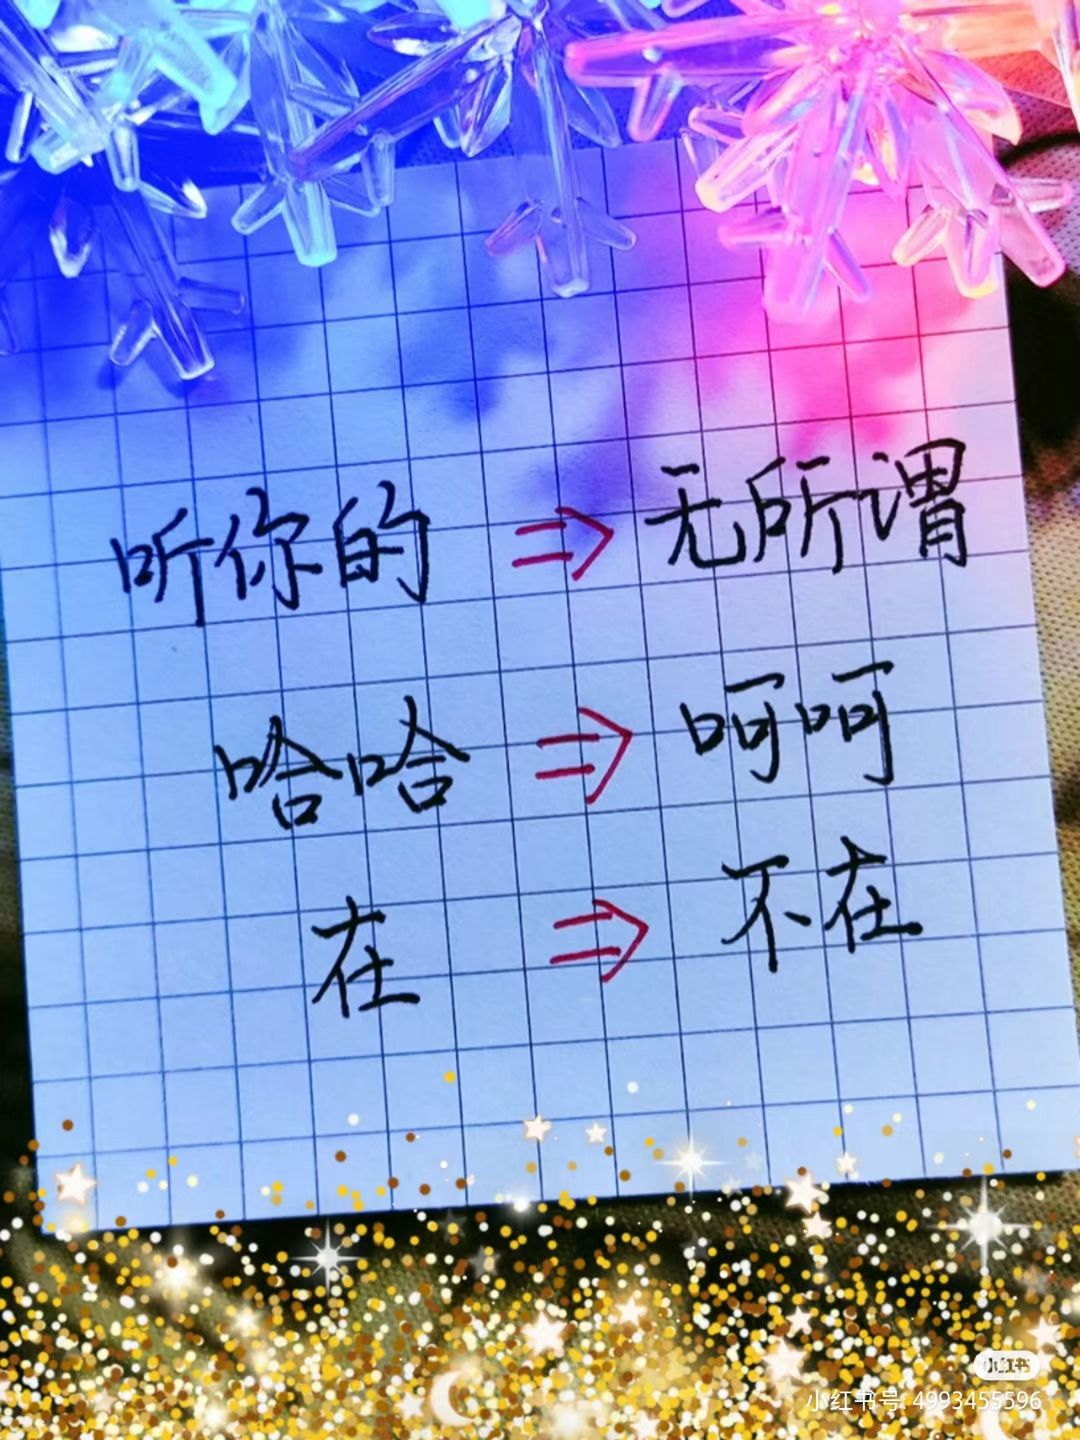 听你的 ⇒ 无所谓
哈哈 ⇒ 呵呵
在 ⇒ 不在
小红书
小红书号: 4993455596